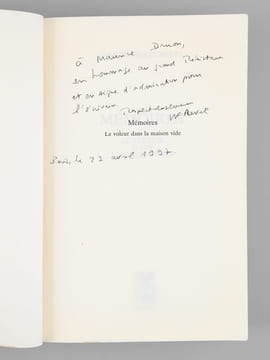 à Maurice Druon,
en hommage au grand
et en signe d'admiration pour
l'écrivain
Respectueusement
JF Revel
Mémoires
Le voleur dans la maison vide
Paris, le 23 avril 1997